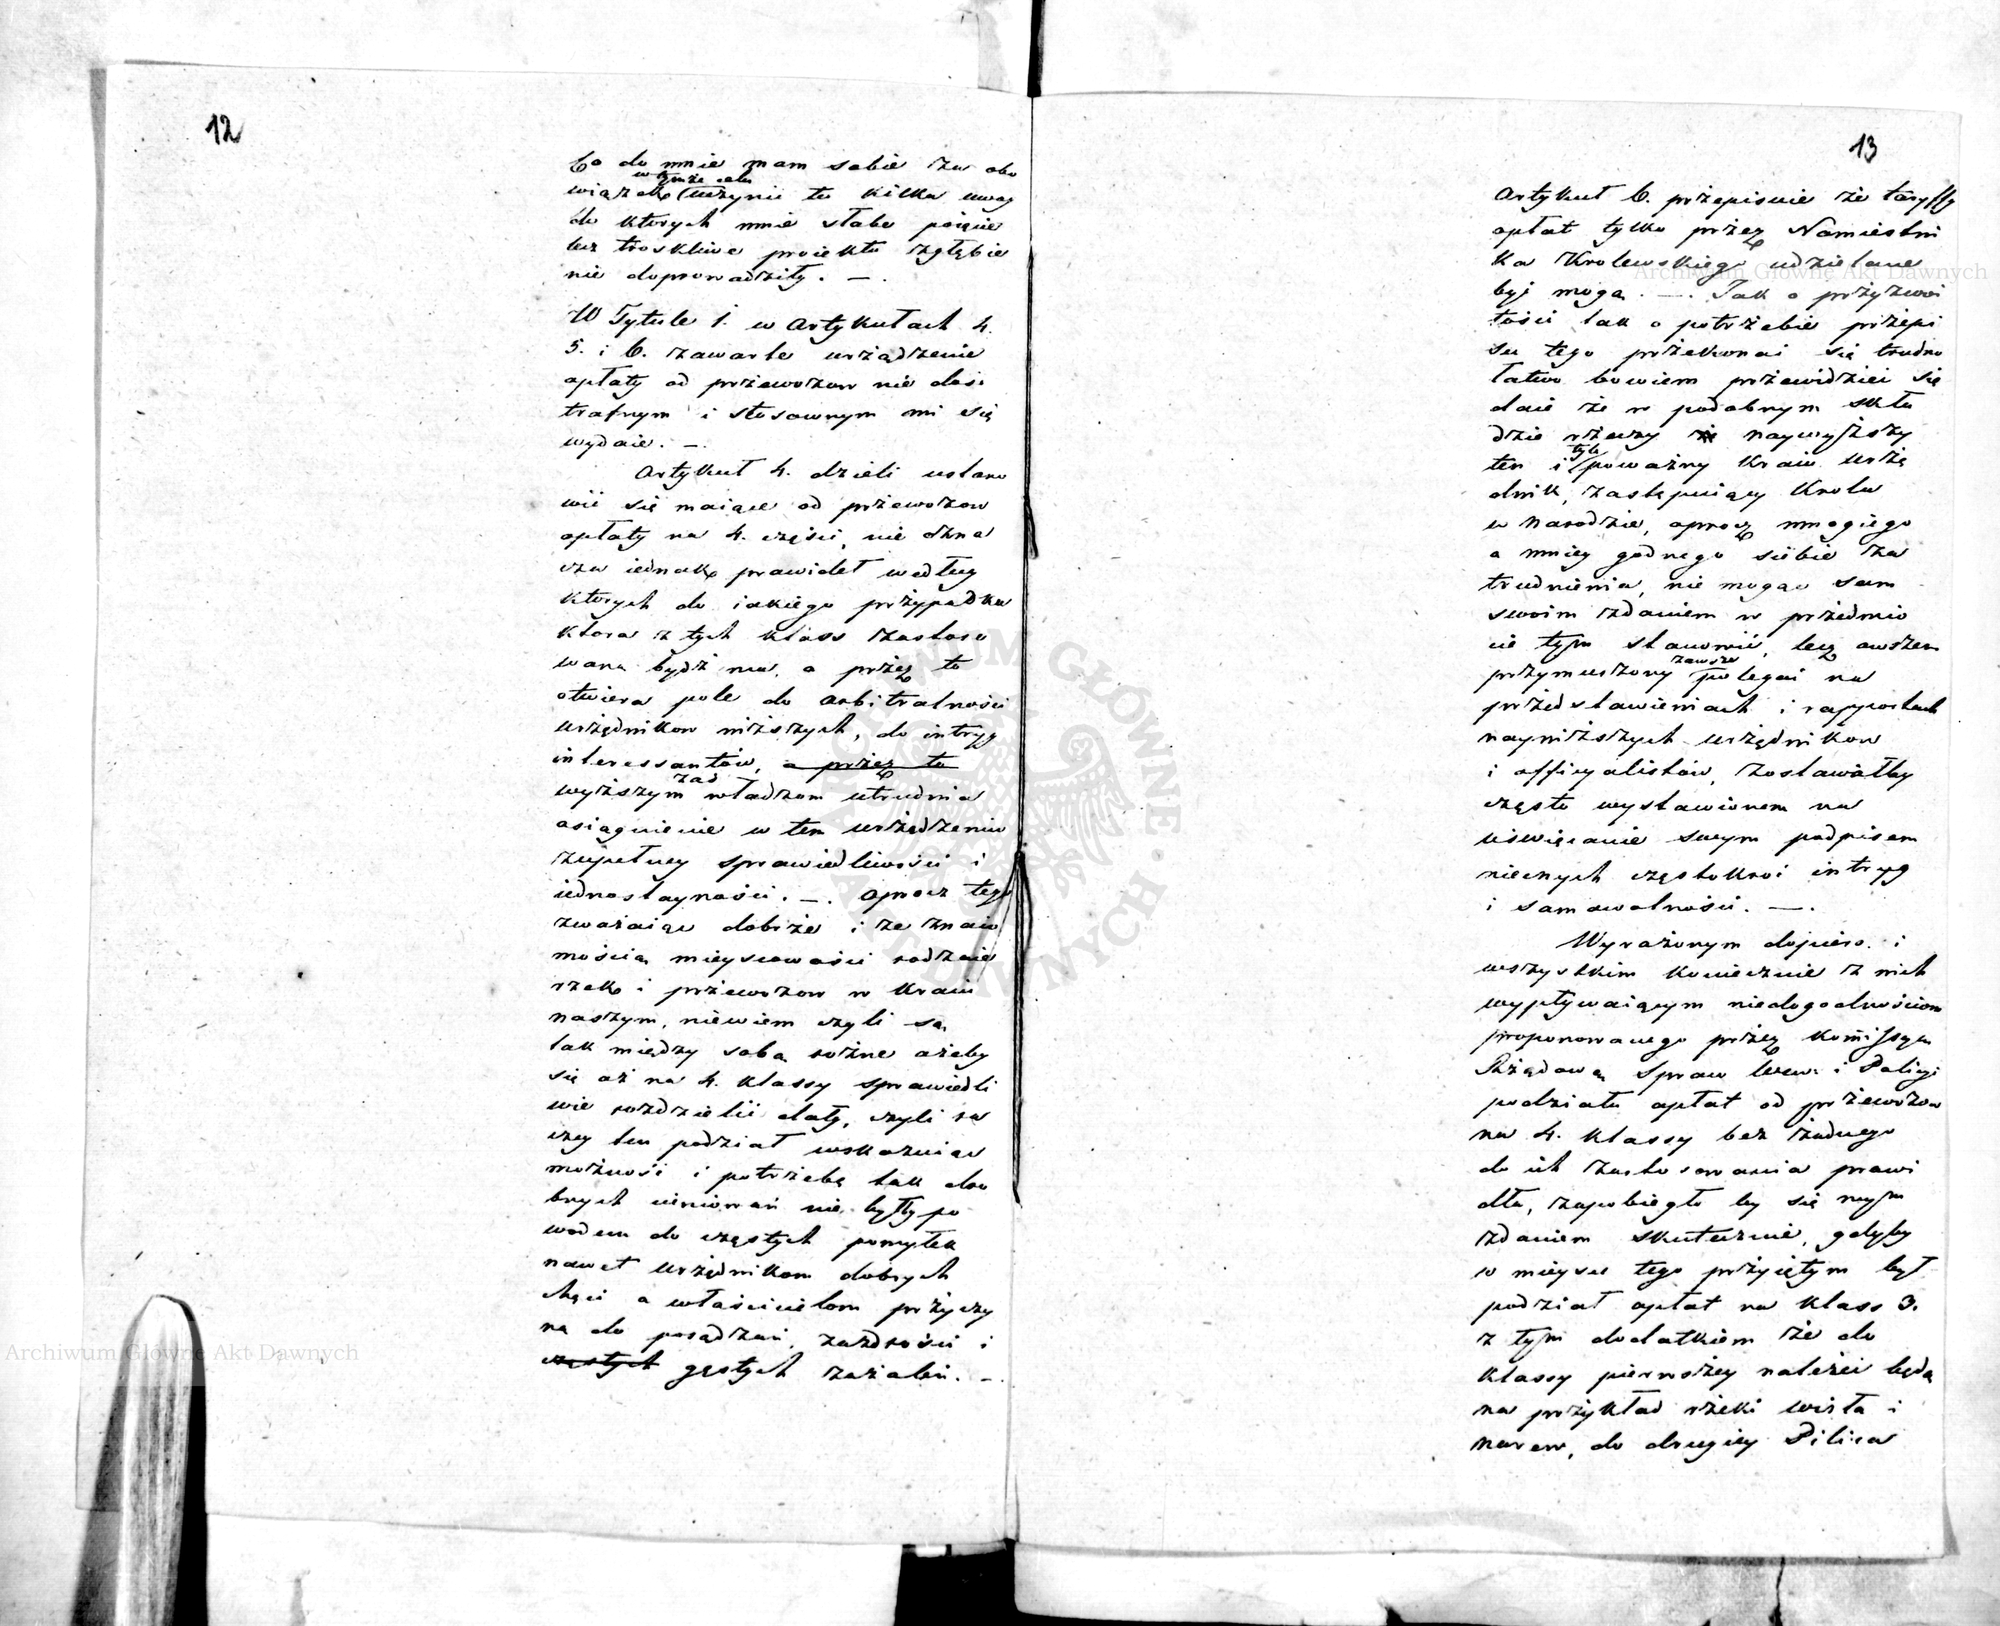 12
Co do mnie mam sobie za obo
w tymże celu
wiązek uczynić tu kilka uwag
do ktorych mnie słabe poięcie
lub troskliwe proiektu zgłębie
nie doprowadziły. —.
W Tytule 1. w Artykułach 4.
5. i 6. zawarte urządzenie
opłaty od przewozow nie dosi
trafnym i stosownym mi się
wydaie. —.
Artykuł 4. dzieli ustano
wić się maiące od przewozow
opłaty na 4. części, nie ozna
cza iednak prawideł według
ktorych do iakiego przypadku
ktora z tych klass zastoso
wana bydź ma, a przez to
otwiera pole do arbitralności
urzędnikow niższych, do intryg
interessantów, a przez to
zaś
wyższym władzom utrudnia
osiągnienie w tem urządzeniu
zupełney sprawiedliwości i
iednostayności. —. Oprocz tego
zważaiąc dobrze i ze znaio
mością mieyscowości rodzaie
rzek i przewozow w kraiu
naszym, niewiem czyli są
tak między sobą rożne ażeby
się aż na 4. klassy sprawiedli
wie rozdzielić dały, czyli ra
czey ten podział wskazuiąc
możność i potrzebę tak dro
bnych cieniowań nie byłby po
wodem do częstych pomyłek
nawet urzędnikom dobrych
chęci a właścicielom przyczy
ną do posądzań, zazdrości i
częstych gęstych zażaleń. —.
13
Artykuł 6. przepisuie że taryffy
opłat tylko przez Namiestni
ka Krolewskiego udzielane
być mogą. —. Jak o przyzwoi
tości tak o potrzebie przepi
su tego przekonać się trudno
łatwo bowiem przewidzieć się
daie że w podobnym skła
dzie rzeczy naywyższy
tyle
ten i poważny Kraiu urzę
dnik, zastępuiący Krola
w Narodzie, oprocz mnogiego
a mniey godnego siebie za
trudnienia, nie mogąc sam
swoim zdaniem w przedmio
cie tym stanowić, lecz owszem
zawsze
przymuszony polegać na
przedstawieniach i rapportach
nayniższych urzędnikow
i officyalistów, zostawałby
często wystawionem na
uświęcanie swym podpisem
niecnych częstokroć intryg
i samowolności. —.
Wyrażonym dopiero i
wszystkim koniecznie z nich
wypływaiącym niedogodnościom
proponowanego przez Kommissyą
Rządową Spraw Wew: i Policyi
podziału opłat od przewozow
na 4. klassy bez żadnego
do ich zastosowania prawi
dła, zapobiegło by się mym
zdaniem skutecznie, gdyby
w mieysce tego przyiętym był
podział opłat na klass 3.
z tym dodatkiem że do
klassy pierwszey należeć będą
na przykład rzeki Wisła i
Narew, do drugiey Pilica
Archiwum Główne Akt Dawnych
Archiwum Główne Akt Dawnych
ARCHIWUM GŁÓWNE AKT DAWNYCH